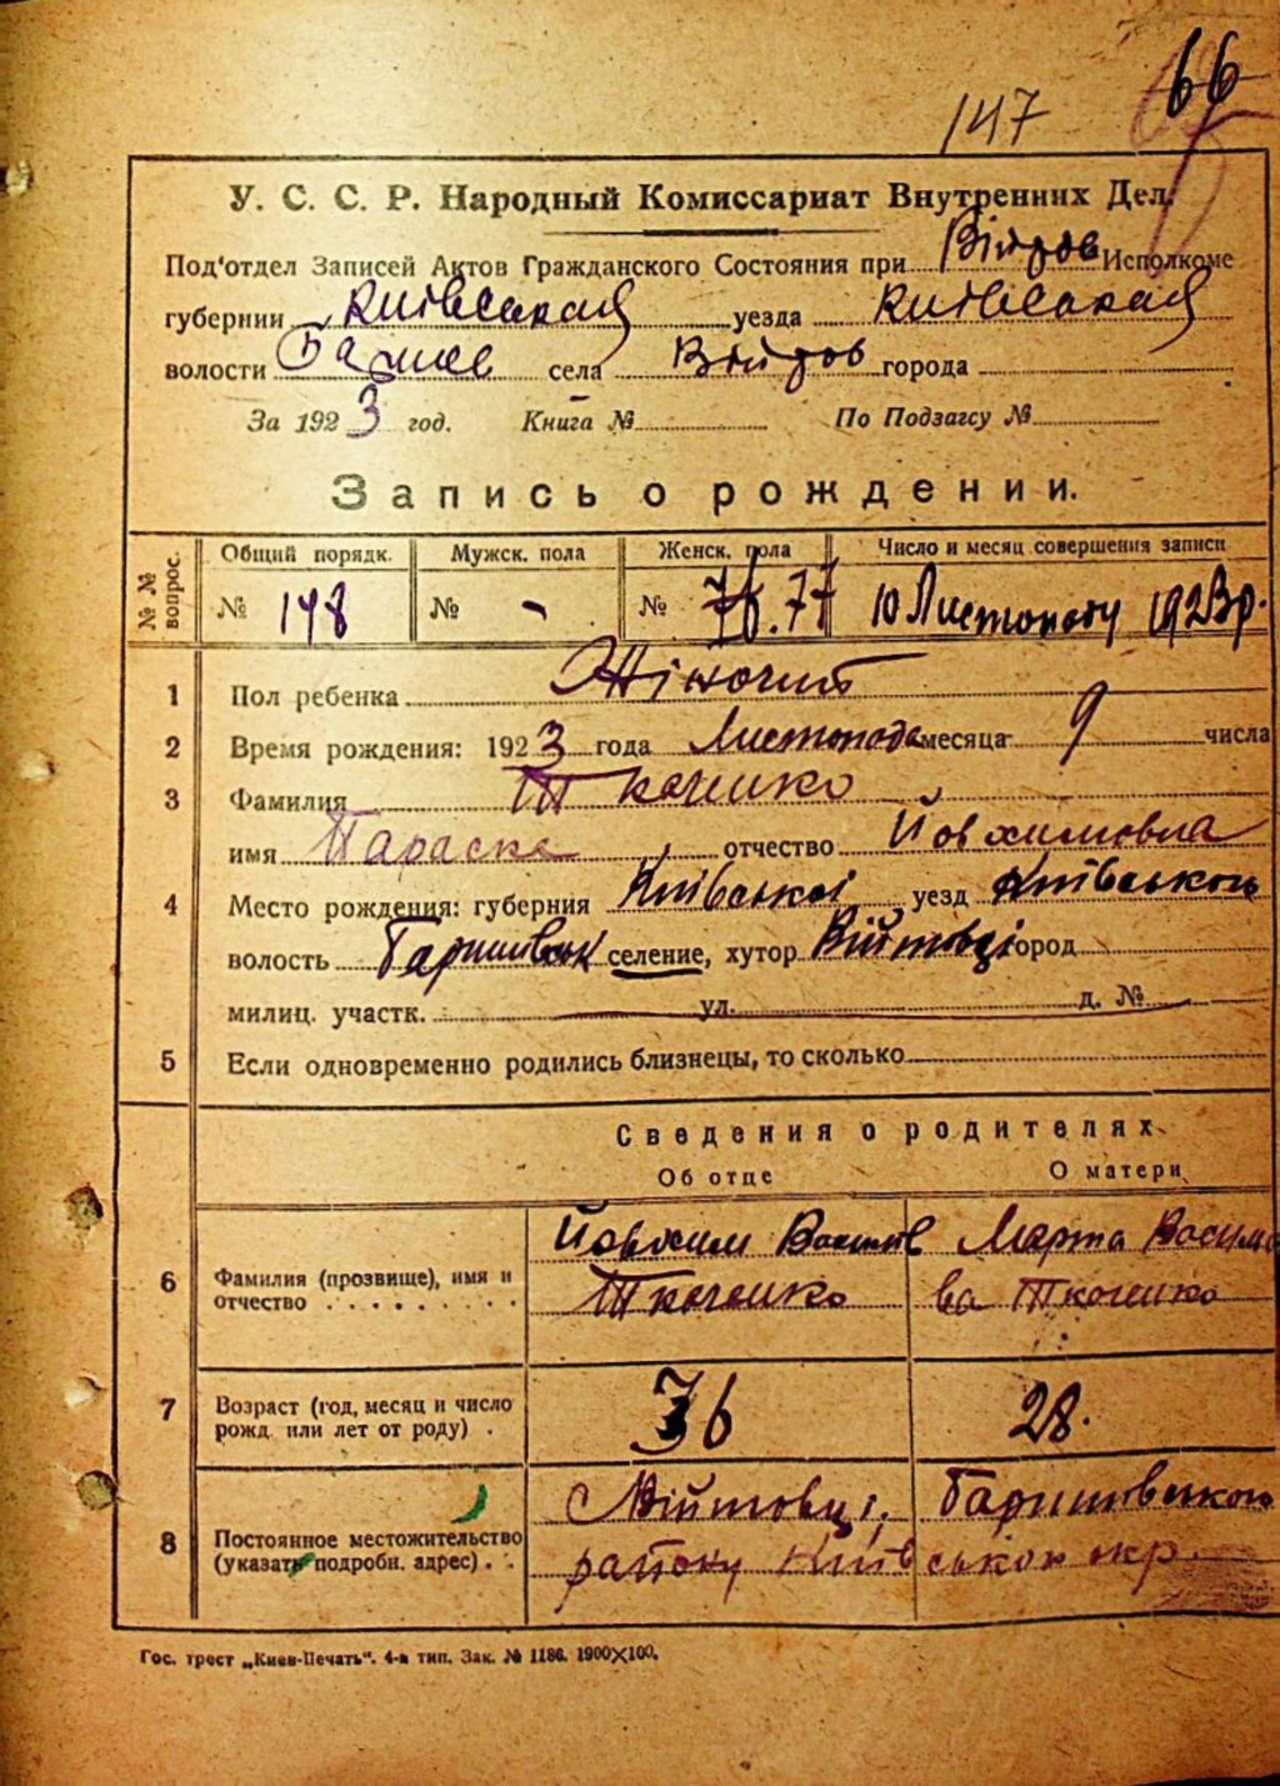 66
147
У. С. С. Р. Народный Комиссариат Внутренних Дел.
Под'отдел Записей Актов Гражданского Состояния при Исполкоме
губернии Київская уезда Київская
волости села города
За 1923 год. Книга № По Подзагсу №
Запись о рождении.
№№ вопрос. Общий порядк. Мужск. пола Женск. пола Число и месяц совершения записи
№ 148 № - № 76. 77 10 Листопаду 1923 р.
1 Пол ребенка Жіночит
2 Время рождения: 1923 года Листопада месяца 9 числа
3 Фамилия Ткаченко
имя Параска отчество Йовхимовна
4 Место рождения: губерния Київської уезд Київського
волость Баришівськ селение, хутор Війтовці город
милиц. участк. ул. д. №
5 Если одновременно родились близнецы, то сколько
Сведения о родителях
Об отце О матери
6 Фамилия (прозвище), имя и отчество Йовхим Ткаченко Марта Васильева Ткаченко
7 Возраст (год, месяц и число рожд. или лет от роду) . 36 28.
8 Постоянное местожительство (указать подробн. адрес) . . с Війтовці, Баришівського
району Київськой окр.
Гос. трест „Киев-Печать“. 4-я тип. Зак. № 1186. 1900×100.